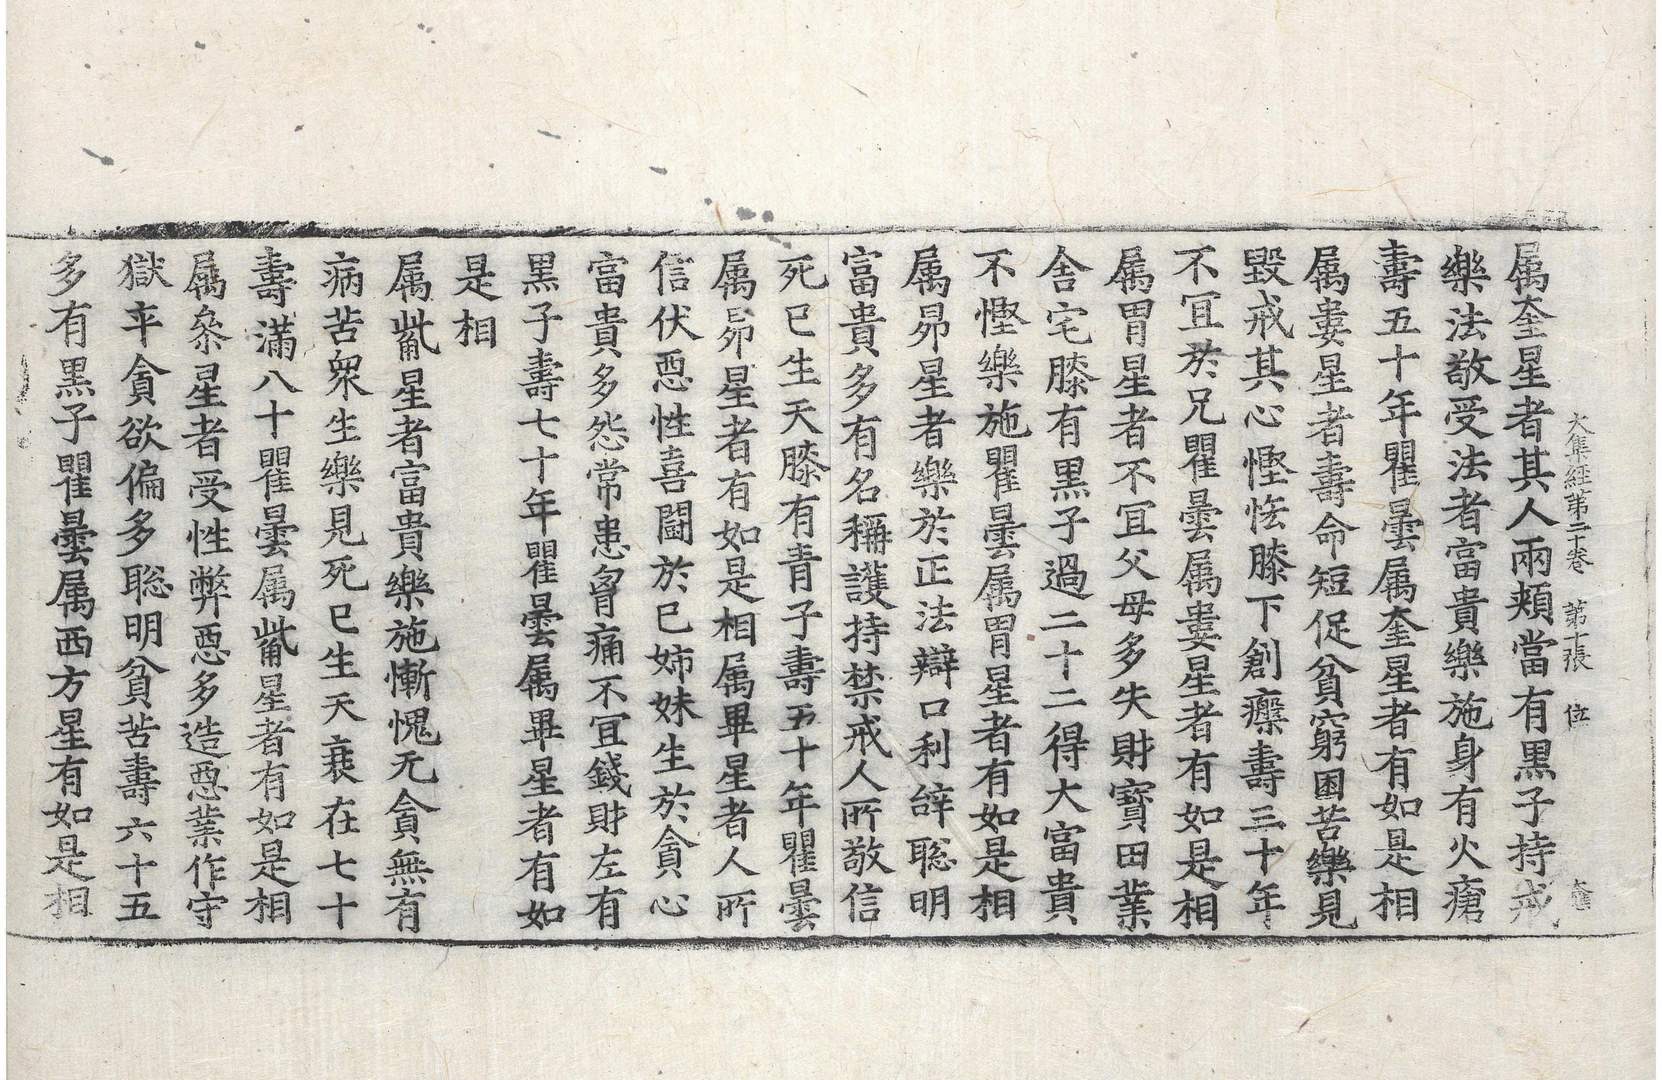 大集經第二十卷 第十張 位
属奎星者其人兩頰當有黒子持戒
樂法敬受法者富貴樂施身有火瘡
壽五十年瞿曇属奎星者有如是相
属婁星者壽命短促貧窮困苦樂見
毀戒其心慳悋膝下創瘢壽三十年
不冝於兄瞿曇属婁星者有如是相
属胃星者不冝父母多失財寶田業
舎宅膝有黒子過二十二得大富貴
不慳樂施瞿曇属胃星者有如是相
属昴星者樂於正法辯口利辝聡明
富貴多有名稱護持禁戒人所敬信
死已生天膝有青子壽五十年瞿曇
属昴星者有如是相属畢星者人所
信伏惡性喜鬪於已姊妹生於貪心
富貴多怨常患胷痛不冝錢財左有
黒子壽七十年瞿曇属畢星者有如
是相
属觜星者富貴樂施慚愧无貪無有
病苦衆生樂見死已生天衰在七十
壽滿八十瞿曇属觜星者有如是相
属叅星者受性弊惡多造惡業作守
獄卒貪欲偏多聡明貧苦壽六十五
多有黒子瞿曇属西方星有如是相